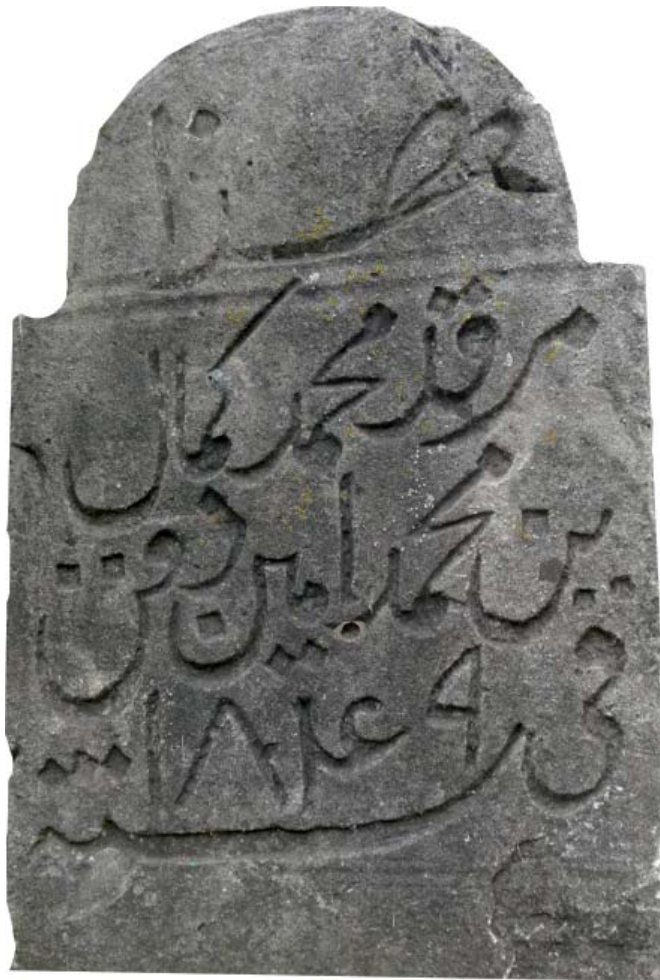 مرقد محمد كمال
بن محمد امين دفن
في سنة ١٨٤٩